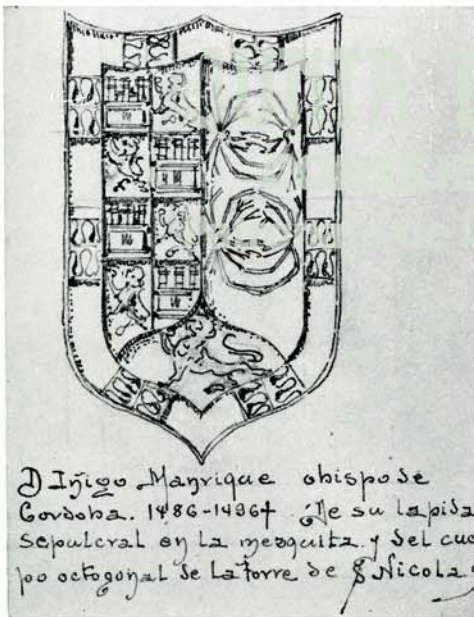 D Iñigo Manrique obispo de
Cordoba. 1486-1496† De su lapida
sepulcral en la mezquita y del cuer
po octogonal de la torre de S Nicolas